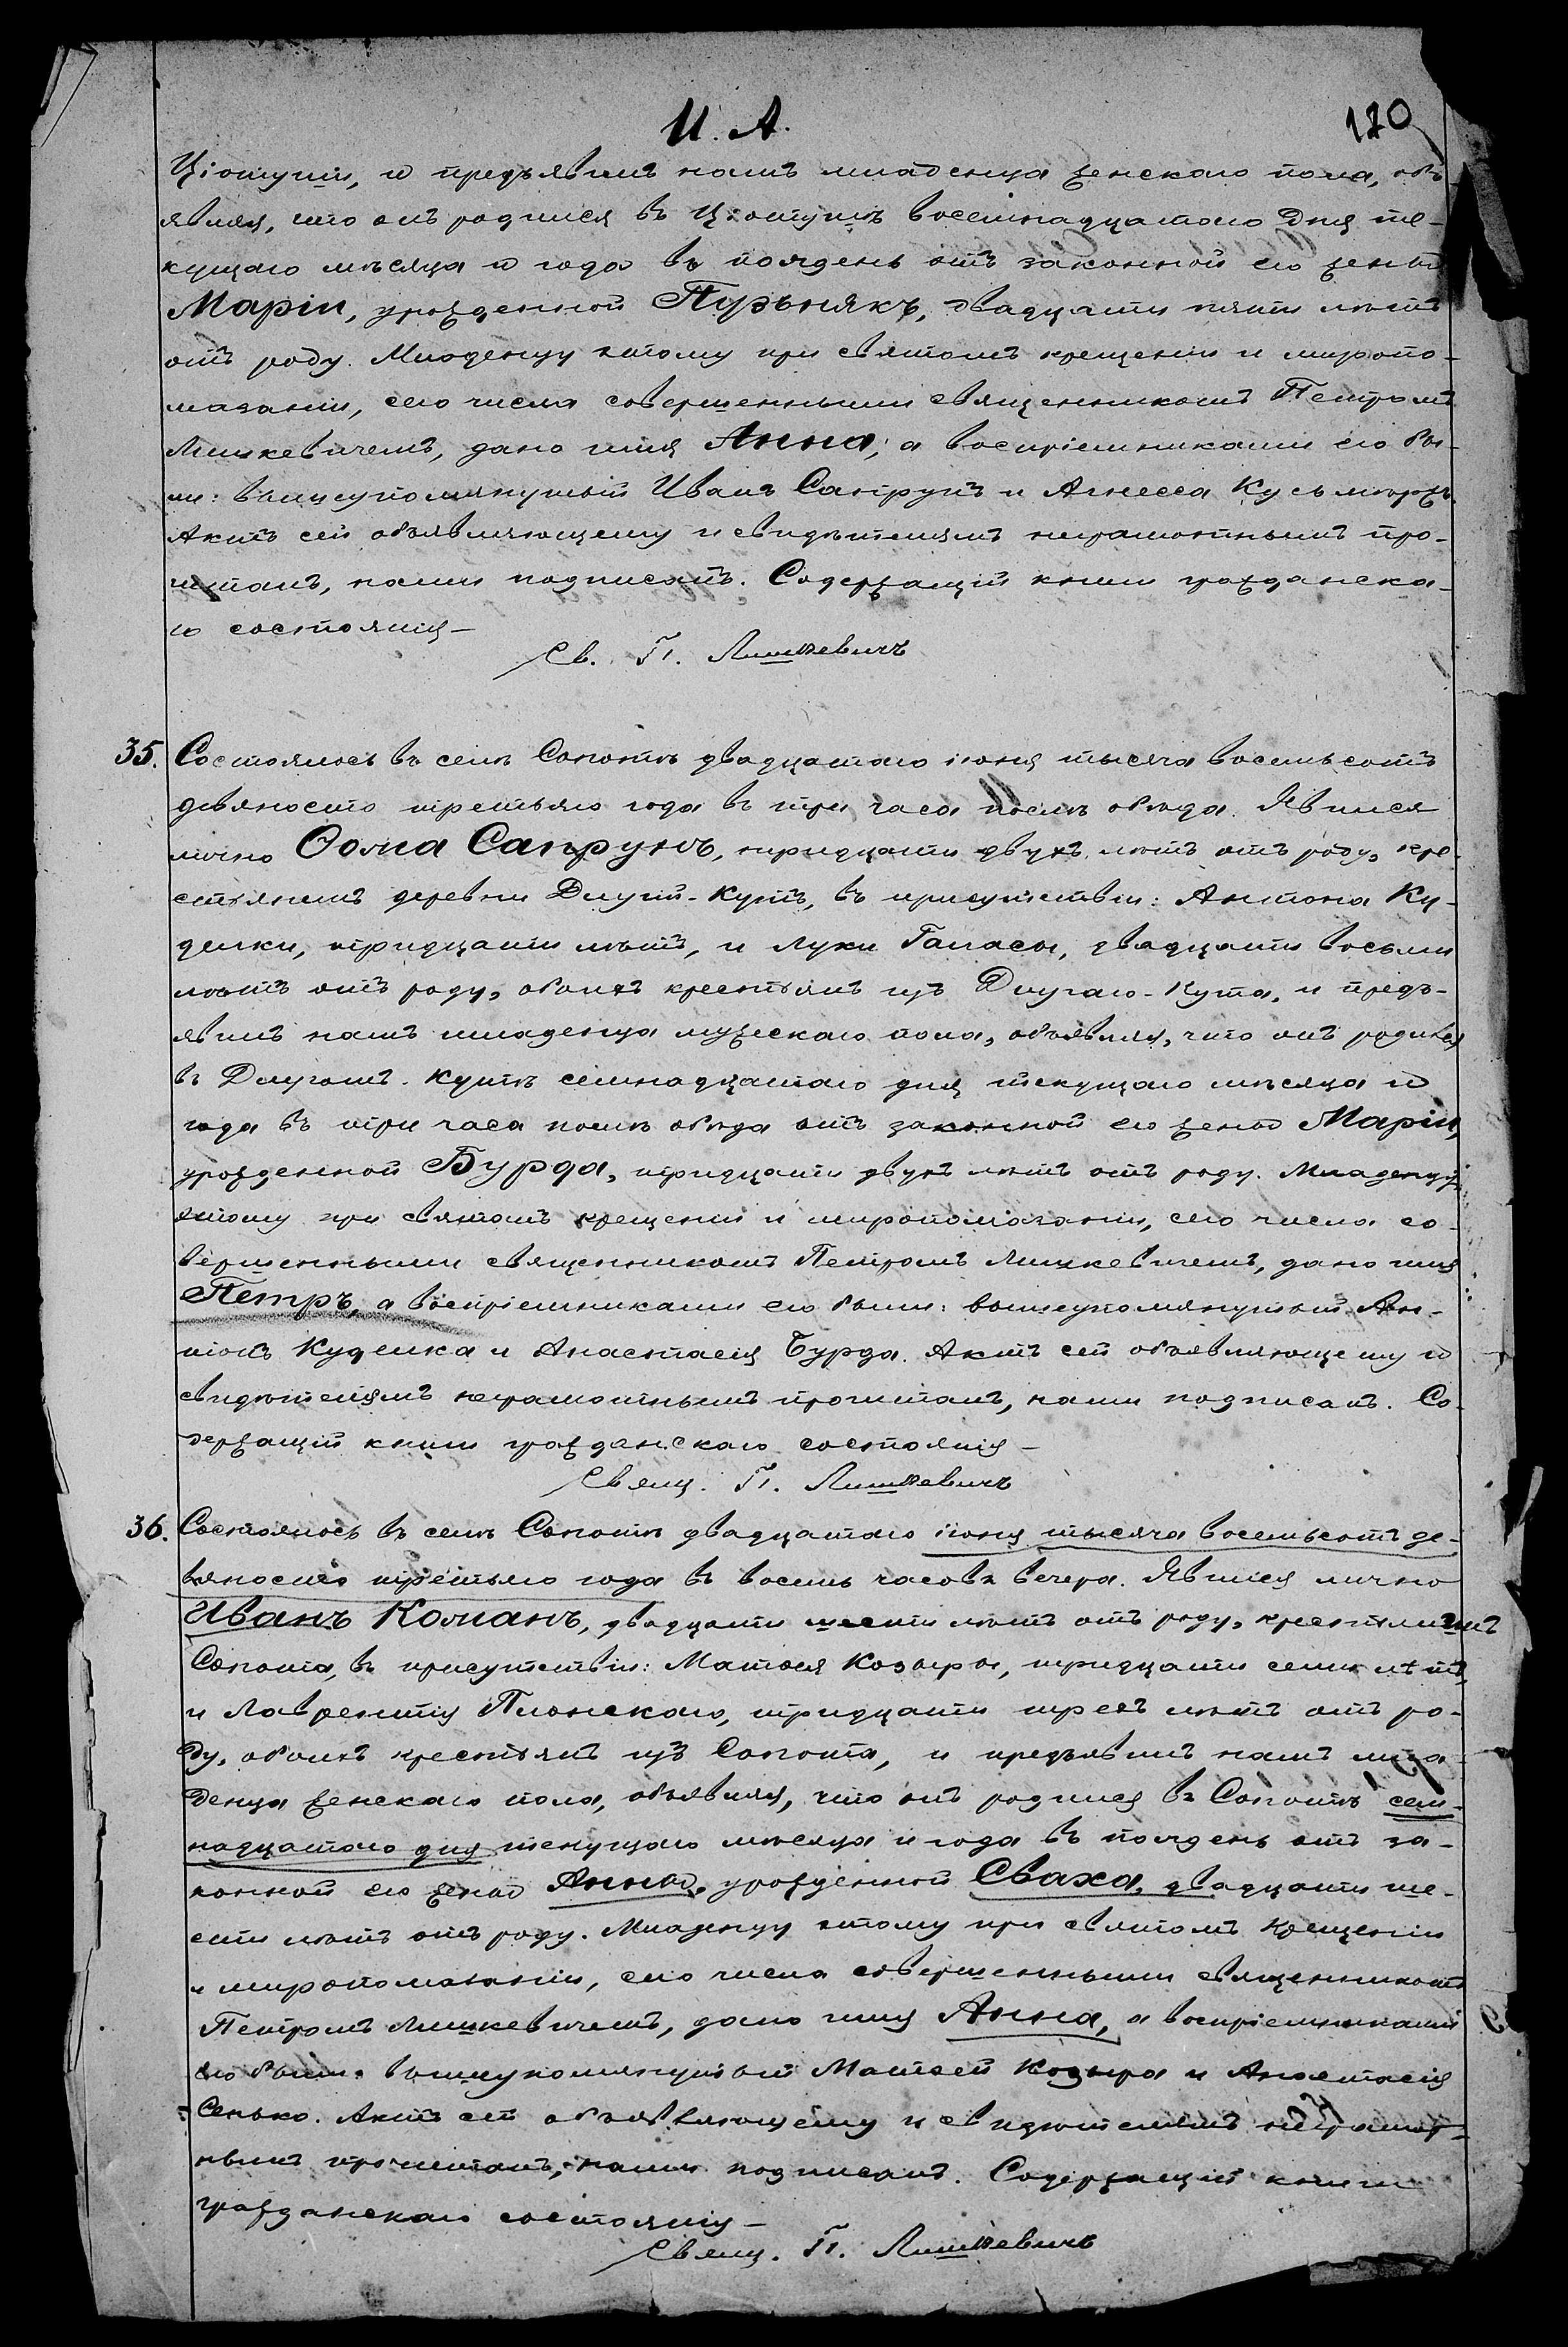 И. А.
120
Ціотуши, и предъявилъ намъ младенца женскаго пола, объ-
являя, что онъ родился въ Ціотушѣ восемнадцатаго дня те-
кущаго мѣсяца и года въ полдень отъ законной его жены
Маріи, урожденной Пузьнякъ, двадцати пяти лѣтъ
отъ роду. Младенцу этому при святомъ крещеніи и миропо-
мазаніи, сего числа совершенными священникомъ Петромъ
Лишкевичемъ, дано имя Анна; а воспріемниками его бы-
ли: вышеупомянутый Иванъ Сапрунъ и Агнесса
Актъ сей объявляющему и свидѣтелямъ неграмотнымъ про-
читанъ, нами подписанъ. Содержащій книги гражданска-
го состоянія –
Св. П. Лишкевичъ
35. Состоялось въ селѣ Сопотѣ двадцатаго іюня тысяча восемьсотъ
девяносто третьяго года въ три часа послѣ обѣда. Явился
лично Ѳома Сапрунъ, тридцати двухъ лѣтъ отъ роду, кре-
стьянинъ деревни Длугій-Кутъ, въ присутствіи: Антона Ку-
делки, тридцати лѣтъ, и Луки Галасы, двадцати восьми
лѣтъ отъ роду, обоихъ крестьянъ изъ Длугаго-Кута, и предъ-
явилъ намъ младенца мужескаго пола, объявляя, что онъ родился
въ Длугомъ-Кутѣ семнадцатаго дня текущаго мѣсяца и
года въ три часа послѣ обѣда отъ законной его жены Маріи,
урожденной Бурда, тридцати двухъ лѣтъ отъ роду. Младенцу
этому при святомъ крещеніи и миропомазаніи, сего числа со-
вершенными священникомъ Петромъ Лишкевичемъ, дано имя
Петръ, а воспріемниками его были: вышеупомянутый Ан-
тонъ Куделка и Анастасія Бурда. Актъ сей объявляющему и
свидѣтелямъ неграмотнымъ прочитанъ, нами подписанъ. Со-
держащій книги гражданскаго состоянія –
Свящ. П. Лишкевичъ
36. Состоялось въ селѣ Сопотѣ двадцатаго іюня тысяча восемьсотъ де-
вяносто третьяго года въ восемь часовъ вечера. Явился лично
Иванъ Команъ, двадцати шести лѣтъ отъ роду, крестьянинъ
Сопота, въ присутствіи: Матѳея Козыры, тридцати семи лѣтъ,
и Лаврентія Плонскаго, тридцати трехъ лѣтъ отъ ро-
ду, обоихъ крестьянъ изъ Сопота, и предъявилъ намъ мла-
денца женскаго пола, объявляя, что онъ родился въ Сопотѣ сем-
надцатаго дня текущаго мѣсяца и года въ полдень отъ за-
конной его жены Анны, урожденной Сваха, двадцати ше-
сти лѣтъ отъ роду. Младенцу этому при святомъ крещеніи
и миропомазаніи, сего числа совершенными священникомъ
Петромъ Лишкевичемъ, дано имя Анна, а воспріемниками
его были: вышеупомянутый Матѳей Козыра и Анастасія
Сенько. Актъ сей объявляющему и свидѣтелямъ неграмот-
нымъ прочитанъ, нами подписанъ. Содержащій книги
гражданскаго состоянія –
Свящ. П. Лишкевичъ